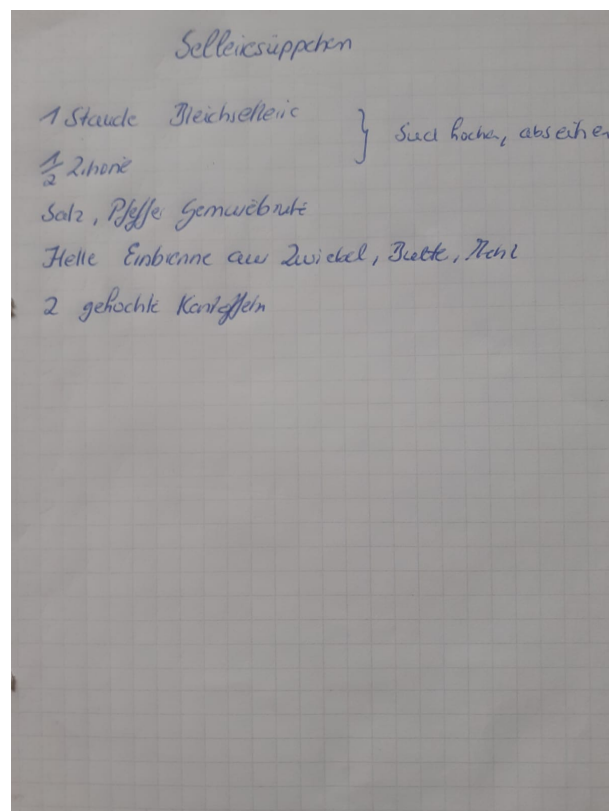 Selleriesüppchen
1 Staude Bleichsellerie } Sud kochen, abseihen
1/2 Zitrone
Salz, Pfeffer Gemüsebrühe
Helle Einbrenne aus Zwiebel, Butter, Mehl
2 gekochte Kartoffeln